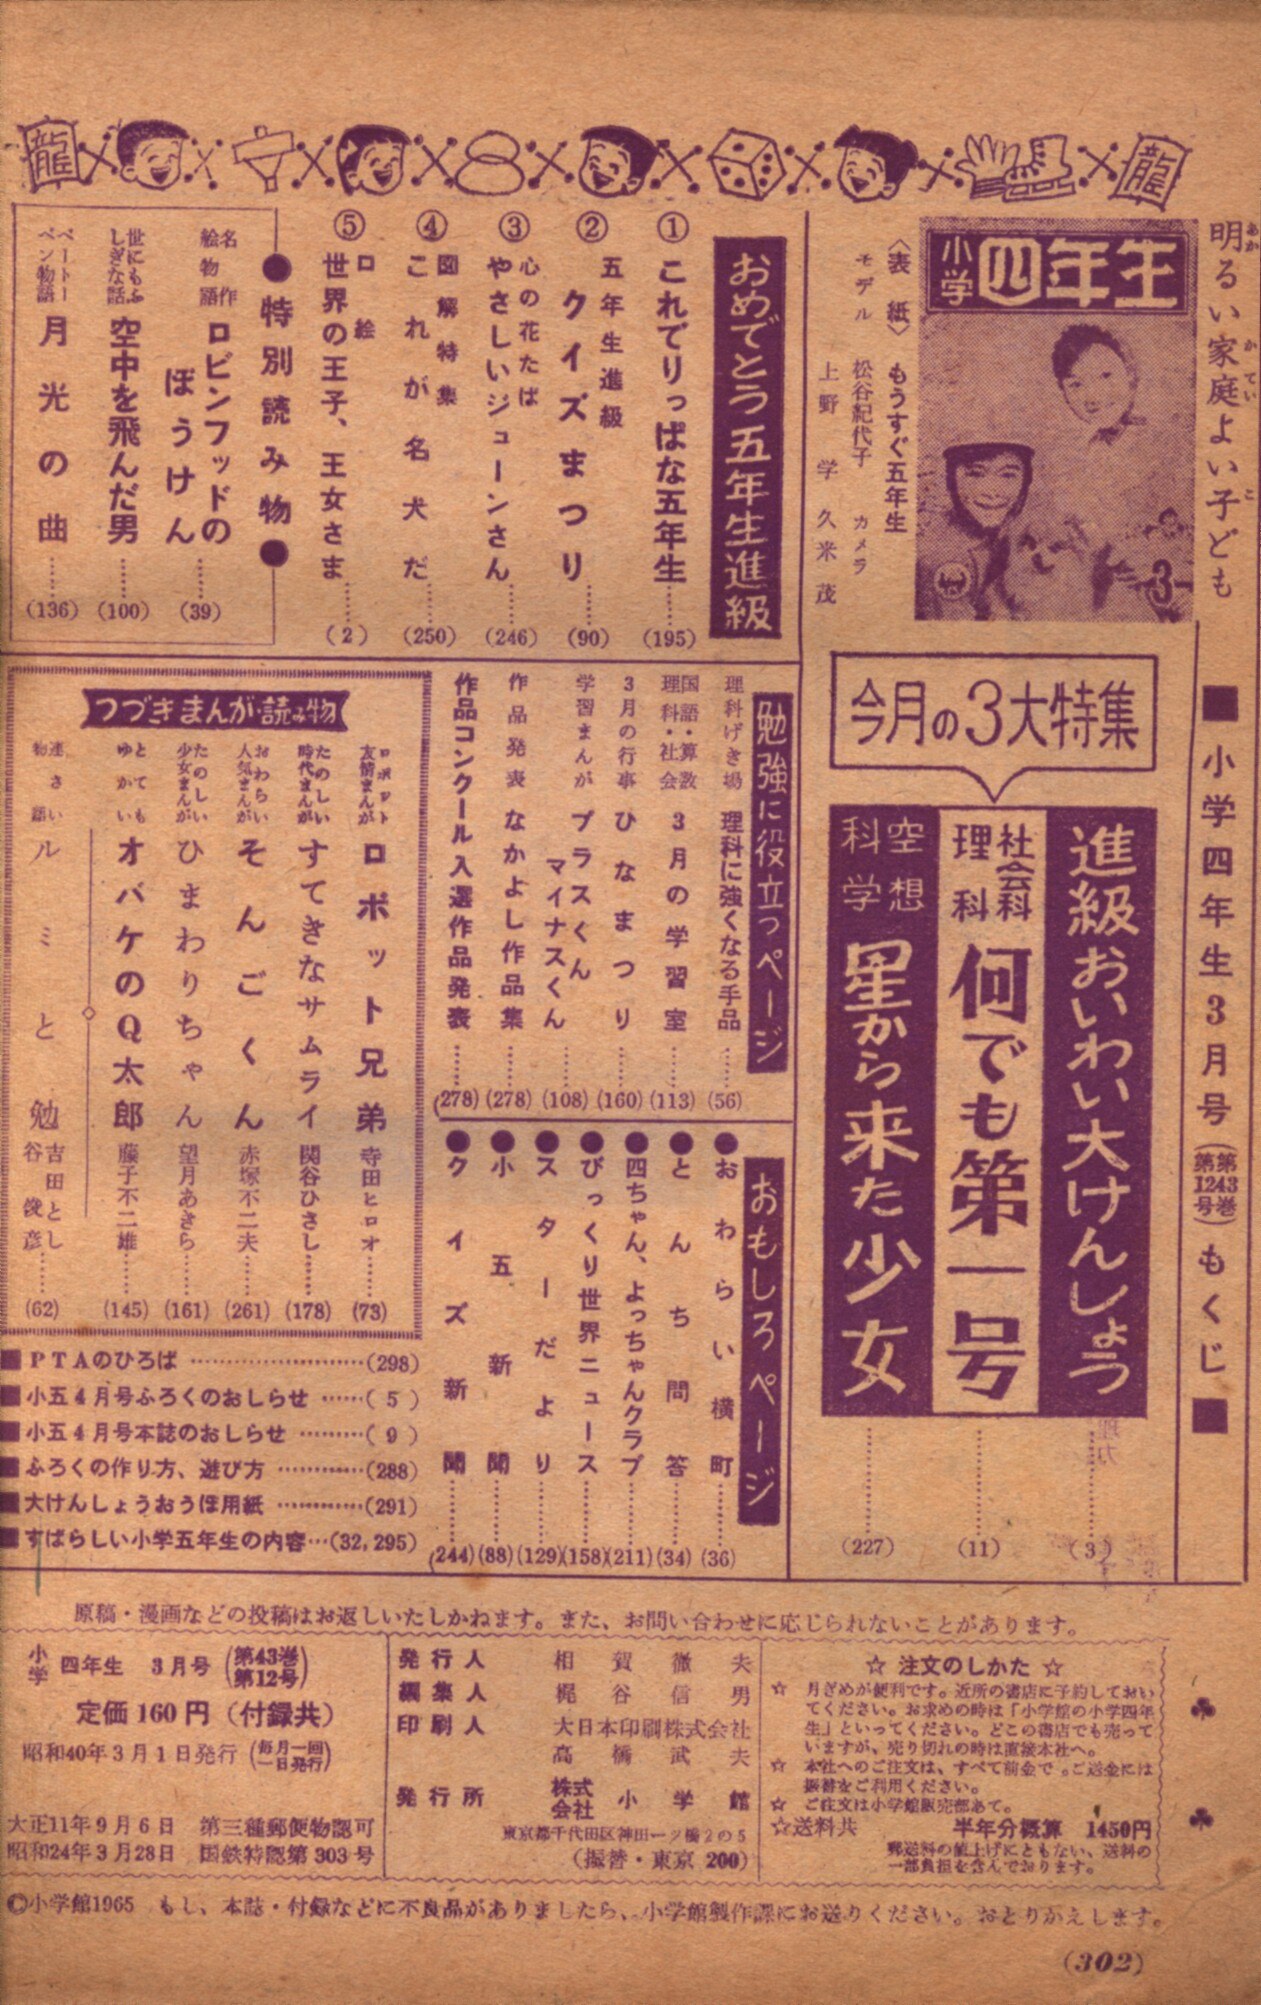 明るい家庭よい子ども
■小学四年生3月号(第43巻第12号)もくじ■
小学四年生
〈表紙〉もうすぐ五年生
モデル 松谷紀代子 カメラ
上野 学 久米 茂
今月の3大特集
進級おいわい大けんしょう……(3)
社会科 理科 何でも第一号……(11)
空想科学 星から来た少女……(227)
おめでとう五年生進級
① これでりっぱな五年生……(195)
② 五年生進級 クイズまつり……(90)
③ 心の花たば やさしいジューンさん……(246)
④ 図解特集 これが名犬だ……(250)
⑤ 口絵 世界の王子、王女さま……(2)
●特別読み物●
名作絵物語 ロビンフッドのぼうけん……(39)
世にもふしぎな話 空中を飛んだ男……(100)
ベートーベン物語 月光の曲……(136)
勉強に役立つページ
理科げき場 理科に強くなる手品……(56)
国語・算数 理科・社会 3月の学習室……(113)
3月の行事 ひなまつり……(160)
学習まんが プラスくん マイナスくん……(108)
作品発表 なかよし作品集……(278)
作品コンクール入選作品発表……(278)
おもしろページ
●おわらい横町……(36)
●とんち問答……(34)
●四ちゃん、よっちゃんクラブ……(211)
●びっくり世界ニュース……(158)
●スターだより……(129)
●小五新聞……(88)
●クイズ新聞……(244)
つづきまんが・読み物
ロボット友情まんが ロボット兄弟 寺田ヒロオ……(73)
たのしい時代まんが すてきなサムライ 関谷ひさし……(178)
おわらい人気まんが そんごくん 赤塚不二夫……(261)
たのしい少女まんが ひまわりちゃん 望月あきら……(161)
とてもゆかい オバケのQ太郎 藤子不二雄……(145)
連さい物語 ルミと勉 吉田とし 谷俊彦……(62)
■PTAのひろば……(298)
■小五4月号ふろくのおしらせ……(5)
■小五4月号本誌のおしらせ……(9)
■ふろくの作り方、遊び方……(288)
■大けんしょうおうぼ用紙……(291)
■すばらしい小学五年生の内容…(32,295)
原稿・漫画などの投稿はお返しいたしかねます。また、お問い合わせに応じられないことがあります。
小学四年生 3月号(第43巻第12号)
定価160円(付録共)
昭和40年3月1日発行(毎月一回一日発行)
大正11年9月6日 第三種郵便物認可
昭和24年3月28日 国鉄特認第303号
発行人 相賀徹夫
編集人 梶谷信男
印刷人 大日本印刷株式会社
高橋武夫
発行所 株式会社 小学館
東京都千代田区神田一ツ橋2の5
(振替・東京200)
☆ 注文のしかた ☆
☆ 月ぎめが便利です。近所の書店に予約しておい
てください。お求めの時は「小学館の小学四年
生」といってください。どこの書店でも売って
いますが、売り切れの時は直接本社へ。
☆ 本社へのご注文は、すべて前金で。ご送金には
振替をご利用ください。
☆ ご注文は小学館販売部あて。
☆送料共 半年分概算 1450円
郵送料の値上げにともない、送料の
一部負担を含んでおります。
©小学館1965 もし、本誌・付録などに不良品がありましたら、小学館製作課にお送りください。おとりかえします。
(302)